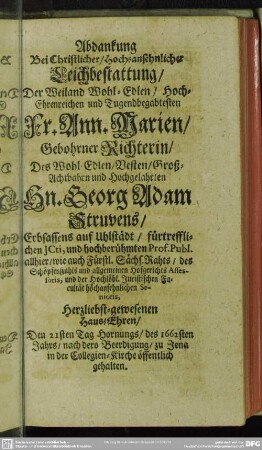 Abdankung
Bei Christlicher/Hochansehnlicher
Leichbestattung/
Der Weiland Wohl-Edlen/ Hoch-
Ehrenreichen und Tugendbegabtesten
Fr. Ann. Marien/
Gebohrner Richterin/
Des Wohl Edlen/Vesten/Groß-
Achtbahrn und Hochgelahrten
Hn. Georg Adam
Struvens/
Erbsassens auf Uhlstädt/ fürtreffli-
chen JCti, und hochberühmten Prof. Publ.
allhier/wie auch Fürstl. Sächs. Rahts/ des
Schöpfenstuhls und allgemeinen Hofgerichts Asses-
soris, und der Hochlöbl. Juristischen Fa-
cultät hochansehnlichen Se-
nioris,
Herzliebst-gewesenen
Haus/Ehren/
Den 21sten Tag Hornungs/des 1661sten
Jahrs/ nach dero Beerdigung/ zu Jena
in der Collegien-Kirche öffentlich
gehalten.
DFG